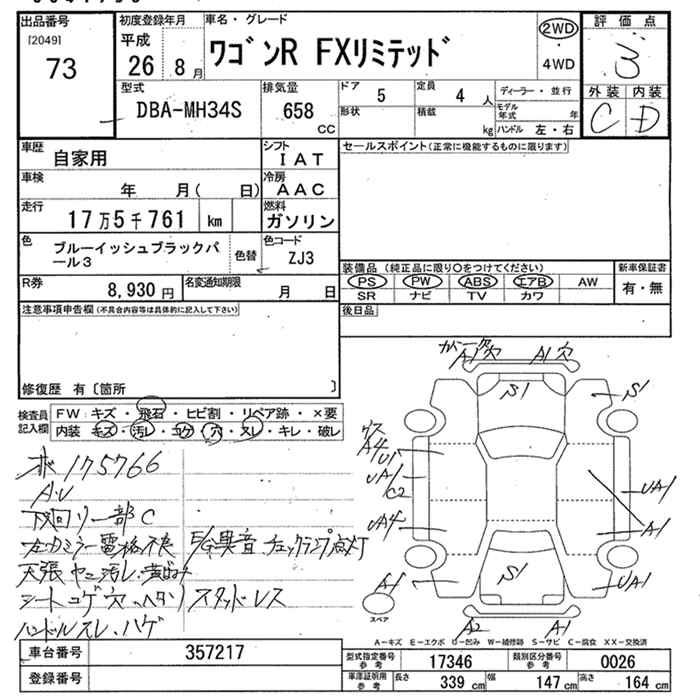 出品番号
[2049]
73
初度登録年月
平成
26 8月
車名・グレード
ワゴンR FXリミテッド
2WD
・
4WD
評価点
3
外装 内装
C D
型式
DBA-MH34S
排気量
658
CC
ドア
5
定員
4 人
形状
積載
kg
ディーラー・並行
モデル
年式 年
ハンドル 左・右
車歴
自家用
シフト
IAT
車検
年 月( 日)
冷房
AAC
走行
17万5千761 km
燃料
ガソリン
色
ブルーイッシュブラックパ
ール3
色替
色コード
ZJ3
R券
8,930円
名変通知期限
月 日
セールスポイント(正常に機能するものに限ります)
装備品 (純正品に限り○をつけてください)
PS PW ABS エアB AW
SR ナビ TV カワ
新車保証書
有・無
後日品
注意事項申告欄(不具合内容等は具体的に記入して下さい)
修復歴 有〔箇所 〕
検査員
記入欄
FW:キズ・飛石・ヒビ割・リペア跡・×要
内装 キズ・汚レ・コゲ・穴・スレ・キレ・破レ
ホ 175766
A・U
下回リ一部C
左カミラー電格不良 E/G異音 チェックランプ点灯
天張ヤニ汚レ・
シートコゲ穴・ヘタリ スタッドレス
ハンドルスレ・ハゲ
A1穴 A1穴
S1
S1
A4
U1
UA1
C2
UA4
A1
UA1
A1
S1
UA1
A2 A1
スペア
A－キズ E－エクボ U－凹み W－補修跡 S－サビ C－腐食 XX－交換済
車台番号
357217
登録番号
型式指定番号
参考
17346
類別区分番号
参考
0026
車庫証明用
参考
長さ
339 cm
幅
147 cm
高さ
164 cm